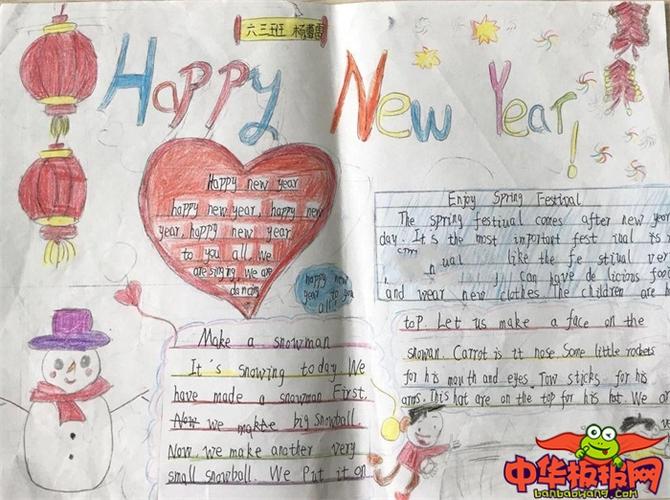 六三班
Happy New Year!
Happy new year
happy new year, happy new
year, happy new year
to you all. We
are singing, we are
dancing.
happy new
year to you
all!
Enjoy Spring Festival
The spring festival comes after new year
day. It's the most important fest ival
nual like the fe stival
can have de licious
and wear new clothes. The children are
Make a snowman
It's snowing today We
have made a snowman First.
Now we make big snowball.
Now, we make another very
small snowball. We Put it on
top Let us make a face on the
snowan. Carrot is it nose Some little rockets
for his mouth and eyes. Tow sticks for his
arms. This hat are on the top for his hat. We
中华板报网
banbaowang.com